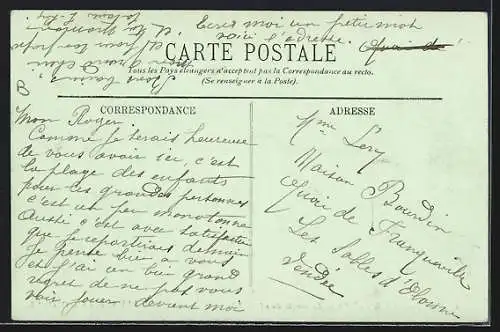 Ecrez moi un petit mot
voici l'adresse. Quai de
CARTE POSTALE
Tous les Pays étrangers n'acceptent pas la Correspondance au recto.
(Se renseigner à la Poste).
CORRESPONDANCE
Mon Roger.
Comme je serais heureuse
de vous avoir ici, c'est
la plage des enfants
pour les grandes personnes
c'est un peu monotone
Aussi c'est avec satisfaction
que je repartirais demain
Je pense bien à vous
et j'ai un bien grand
regret de ne pas vous
voir jouer devient moi
ADRESSE
Mme Lery
Maison Bourdin
Quai de Franqueville
Les Sables d'Olonne
Vendée